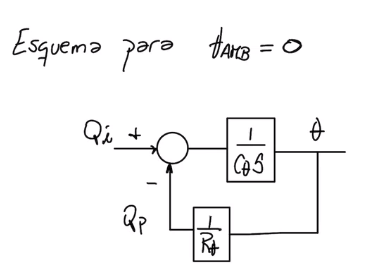 Esquema para θAMB = 0
Qi + 1 θ
CθS
−
Qp 1
Rθ